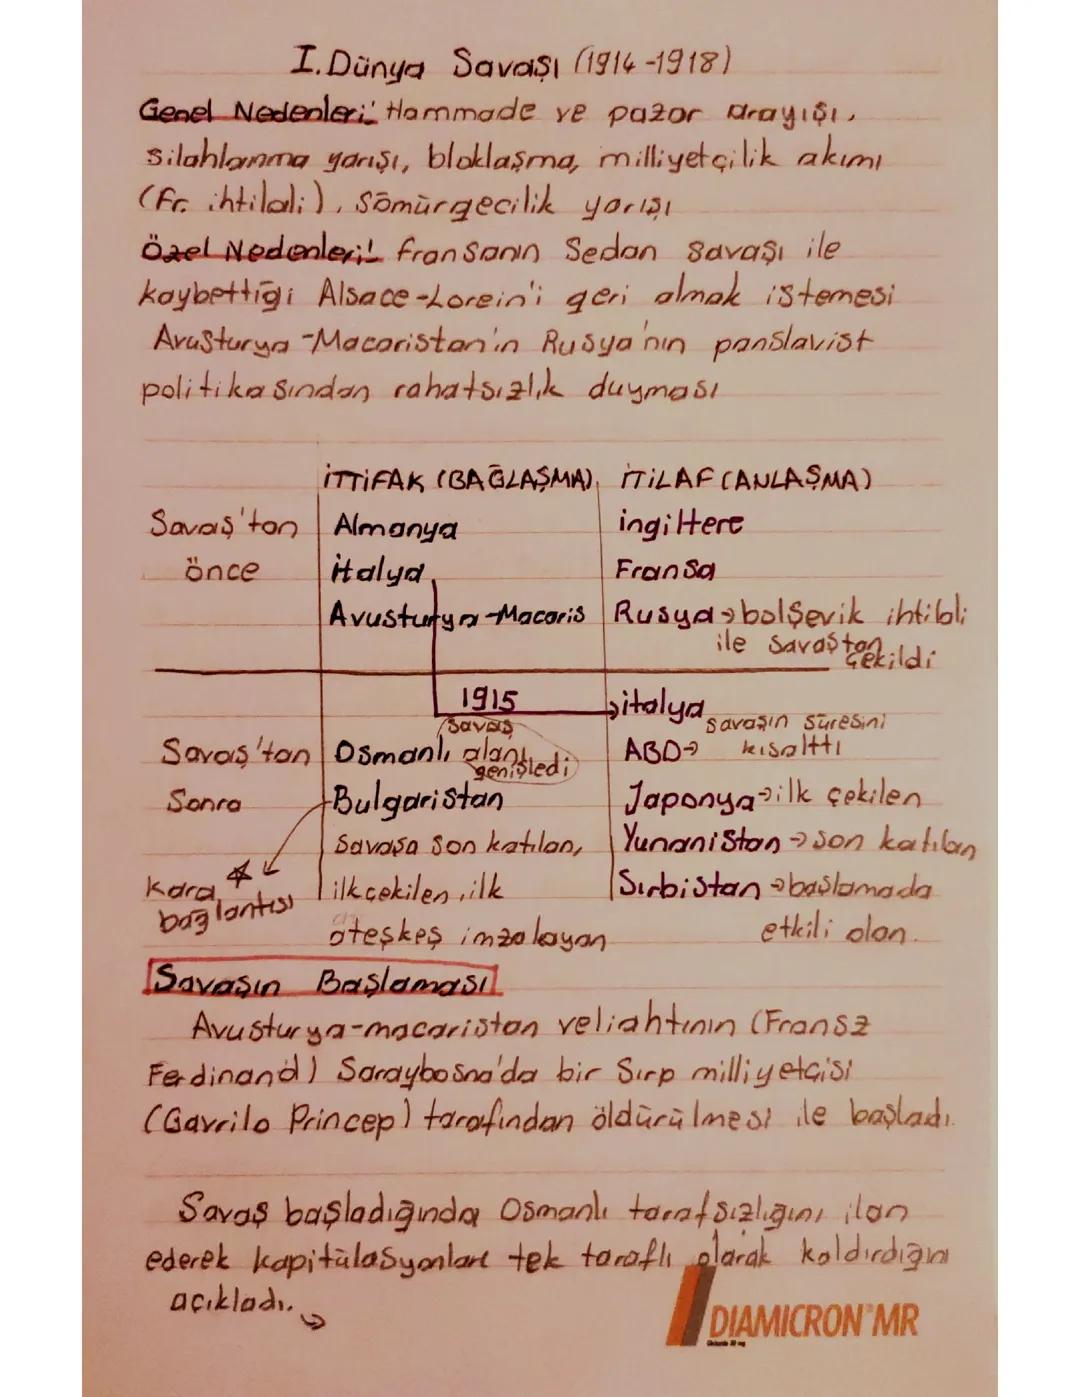 I. Dünya Savaşı (1914-1918)
Genel Nedenleri: Hammade ve pazar arayışı,
silahlanma yarışı, bloklaşma, milliyetçilik akımı
(Fr. ihtilali), Sömürgecilik yarışı
Özel Nedenleri: fransanın Sedan Savaşı ile
kaybettiği Alsace-Lorein'i geri almak istemesi
Avusturya-Macaristan'ın Rusya'nın panslavist
politikasından rahatsızlık duyması
İTTİFAK (BAĞLAŞMA) İTİLAF (ANLAŞMA)
Savaş'tan Almanya ingiltere
önce italya Fransa
Avusturya-Macaris Rusya → bolşevik ihtilali
ile savaştan
çekildi
1915 → italya
savaş savaşın süresini
Savaş'tan Osmanlı alanı ABD → kısalttı
genişledi
Sonra Bulgaristan Japonya → ilk çekilen
Savaşa son katılan, Yunanistan → son katılan
Kara ilk çekilen, ilk Sırbistan → başlamada
bağlantısı
ateşkeş imzalayan etkili olan.
Savaşın Başlaması
Avusturya-macaristan veliahtının (Fransz
Ferdinand) Saraybosna'da bir Sırp milliyetçisi
(Gavrilo Princep) tarafından öldürülmesi ile başladı.
Savaş başladığında Osmanlı tarafsızlığını ilan
ederek kapitülasyonları tek taraflı olarak kaldırdığını
açıkladı.
DIAMICRON MR